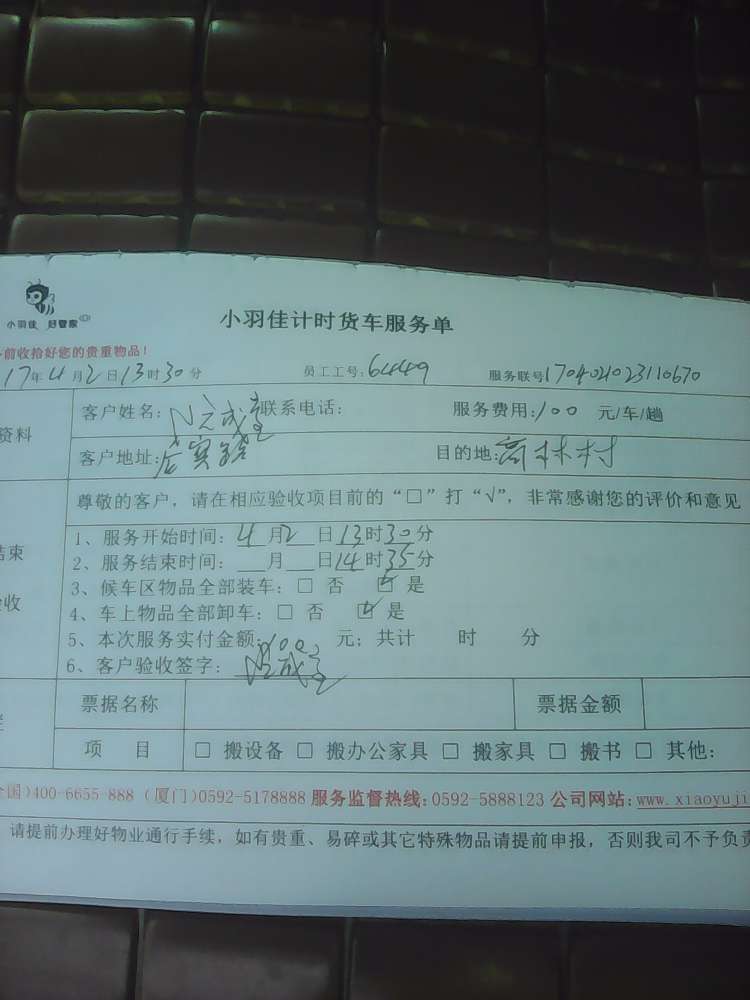 小羽佳 好管家
小羽佳计时货车服务单
前收拾好您的贵重物品！
17年4月2日13时30分 员工工号：64449 服务联号1704021023110670
资料
客户姓名： 联系电话： 服务费用：100 元/车/趟
客户地址： 目的地：高林村
尊敬的客户，请在相应验收项目前的“□”打“√”，非常感谢您的评价和意见
结束
验收
1、服务开始时间：4月2日13时30分
2、服务结束时间：__月__日14时35分
3、候车区物品全部装车：□ 否 ☑ 是
4、车上物品全部卸车：□ 否 ☑ 是
5、本次服务实付金额：100 元；共计 时 分
6、客户验收签字：
票据名称 票据金额
项 目 □ 搬设备 □ 搬办公家具 □ 搬家具 □ 搬书 □ 其他：
全国)400-6655-888 (厦门)0592-5178888 服务监督热线：0592-5888123 公司网站：www.xiaoyuji
请提前办理好物业通行手续，如有贵重、易碎或其它特殊物品请提前申报，否则我司不予负责